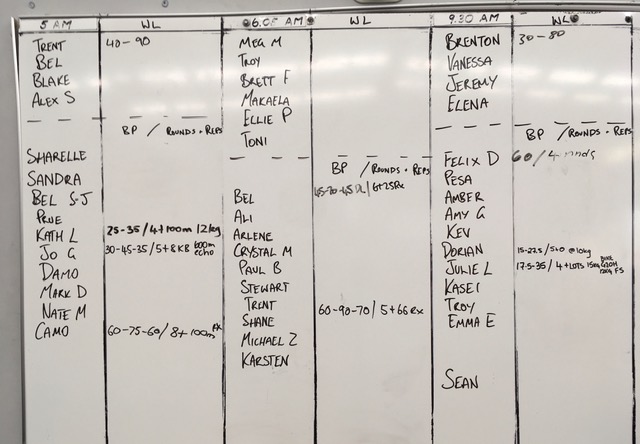 5 AM WL
TRENT 40-90
BEL
BLAKE
ALEX S
BP / ROUNDS + REPS
SHARELLE
SANDRA
BEL S-J
PRUE
KATH L 25-35/4+100m 12kg
JO G 30-45-35/5+8KB 600m echo
DAMO
MARK D
NATE M
CAMO 60-75-60/8+100m RX
6.05 AM WL
MEG M
TROY
BRETT F
MAKAELA
ELLIE P
TONI
BP / ROUNDS + REPS
BEL 45-70-45 DL/6+25Rx
ALI
ARLENE
CRYSTAL M
PAUL B
STEWART
TRENT
SHANE 60-90-70/5+66Rx
MICHAEL Z
KARSTEN
9.30 AM WL
BRENTON 30-80
VANESSA
JEREMY
ELENA
BP / ROUNDS + REPS
FELIX D 60/4
PESA
AMBER
AMY G
KEV
DORIAN 15-22.5/5+0 @10kg
JULIE L 17.5-35/4+LOTS 15kg
KASEI
TROY
EMMA E
SEAN